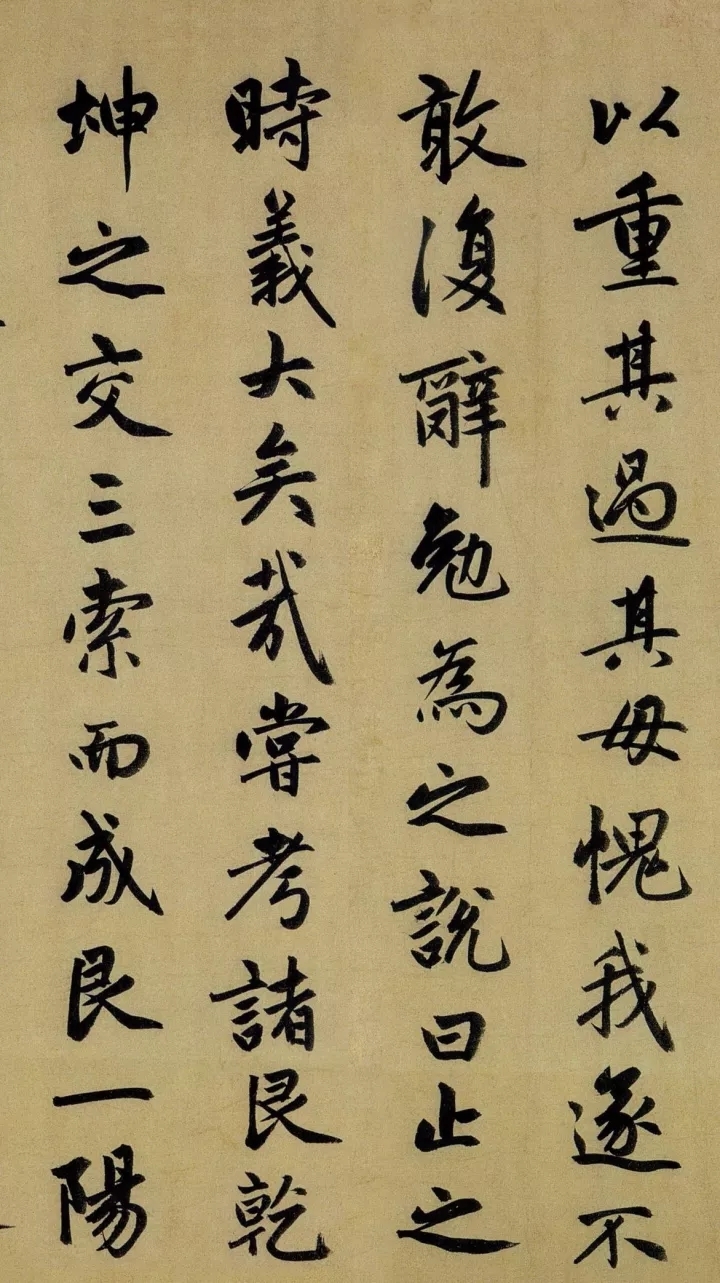 以重其過其毋愧我遂不
敢復辭勉為之說曰止之
時義大矣哉嘗考諸艮乾
坤之交三索而成艮一陽